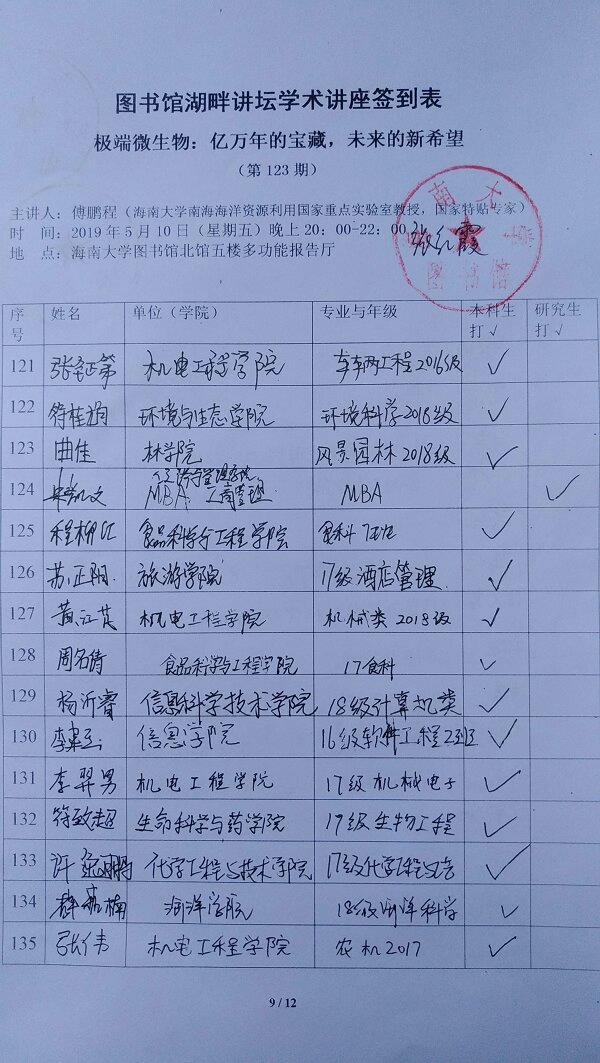 图书馆湖畔讲坛学术讲座签到表
极端微生物：亿万年的宝藏，未来的新希望
（第 123 期）
主讲人：傅鹏程（海南大学南海海洋资源利用国家重点实验室教授，国家特贴专家）
时 间：2019 年 5 月 10 日（星期五）晚上 20：00-22：00
地 点：海南大学图书馆北馆五楼多功能报告厅
张红霞
序号 姓名 单位（学院） 专业与年级 本科生打√ 研究生打√
121 机电工程学院 车辆工程2016级 √
122 符桂 环境与生态学院 环境科学2018级 √
123 曲佳 林学院 风景园林2018级 √
124 MBA 工商管理 MBA √
125 程柳红 食品科学与工程学院 食科 √
126 苏正阳 旅游学院 17级酒店管理 √
127 黄江 机电工程学院 机械类 2018级 √
128 周名倩 食品科学与工程学院 17食科 √
129 杨沂睿 信息科学技术学院 18级计算机类 √
130 信息学院 16级软件工程2班 √
131 李羿男 机电工程学院 17级机械电子 √
132 符致超 生命科学与药学院 17级生物工程 √
133 许 化学工程与技术学院 17级化学工程与 √
134 楠 海洋学院 18级海洋科学 √
135 张伟 机电工程学院 农机2017 √
9 / 12